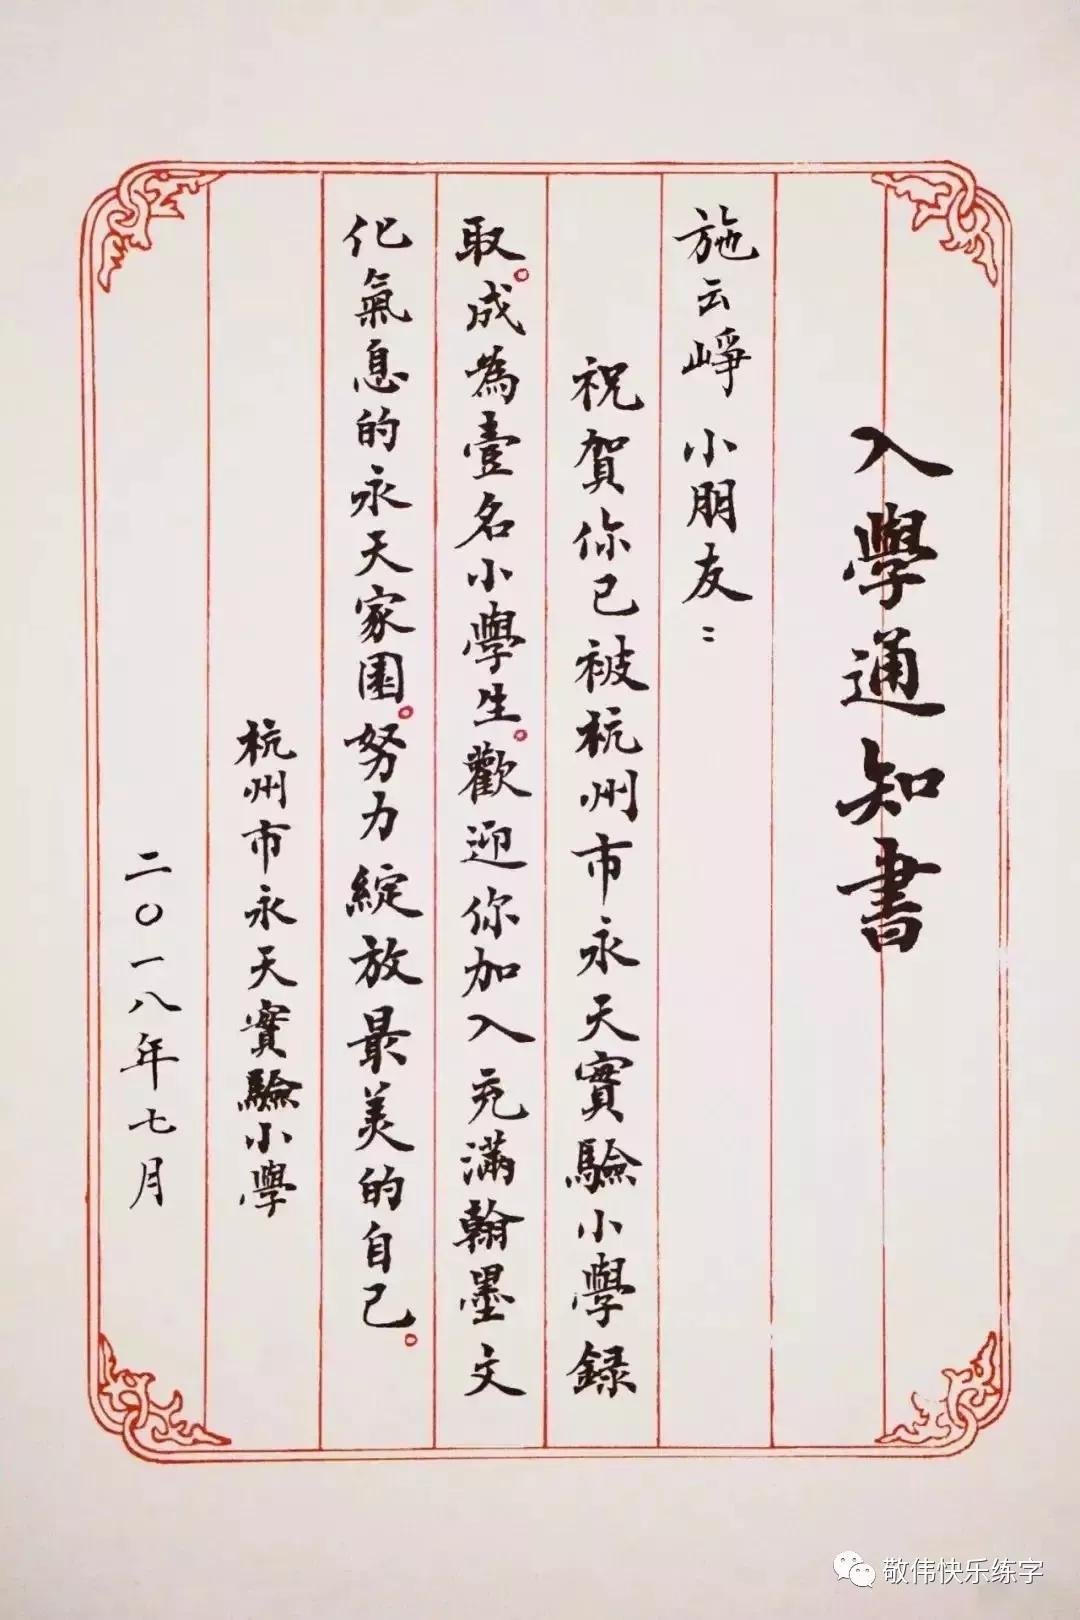 入學通知書
施云崢 小朋友：
祝賀你已被杭州市永天實驗小學録
取。成為壹名小學生。歡迎你加入充滿翰墨文
化氣息的永天家園。努力綻放最美的自己。
杭州市永天實驗小學
二〇一八年七月
敬伟快乐练字